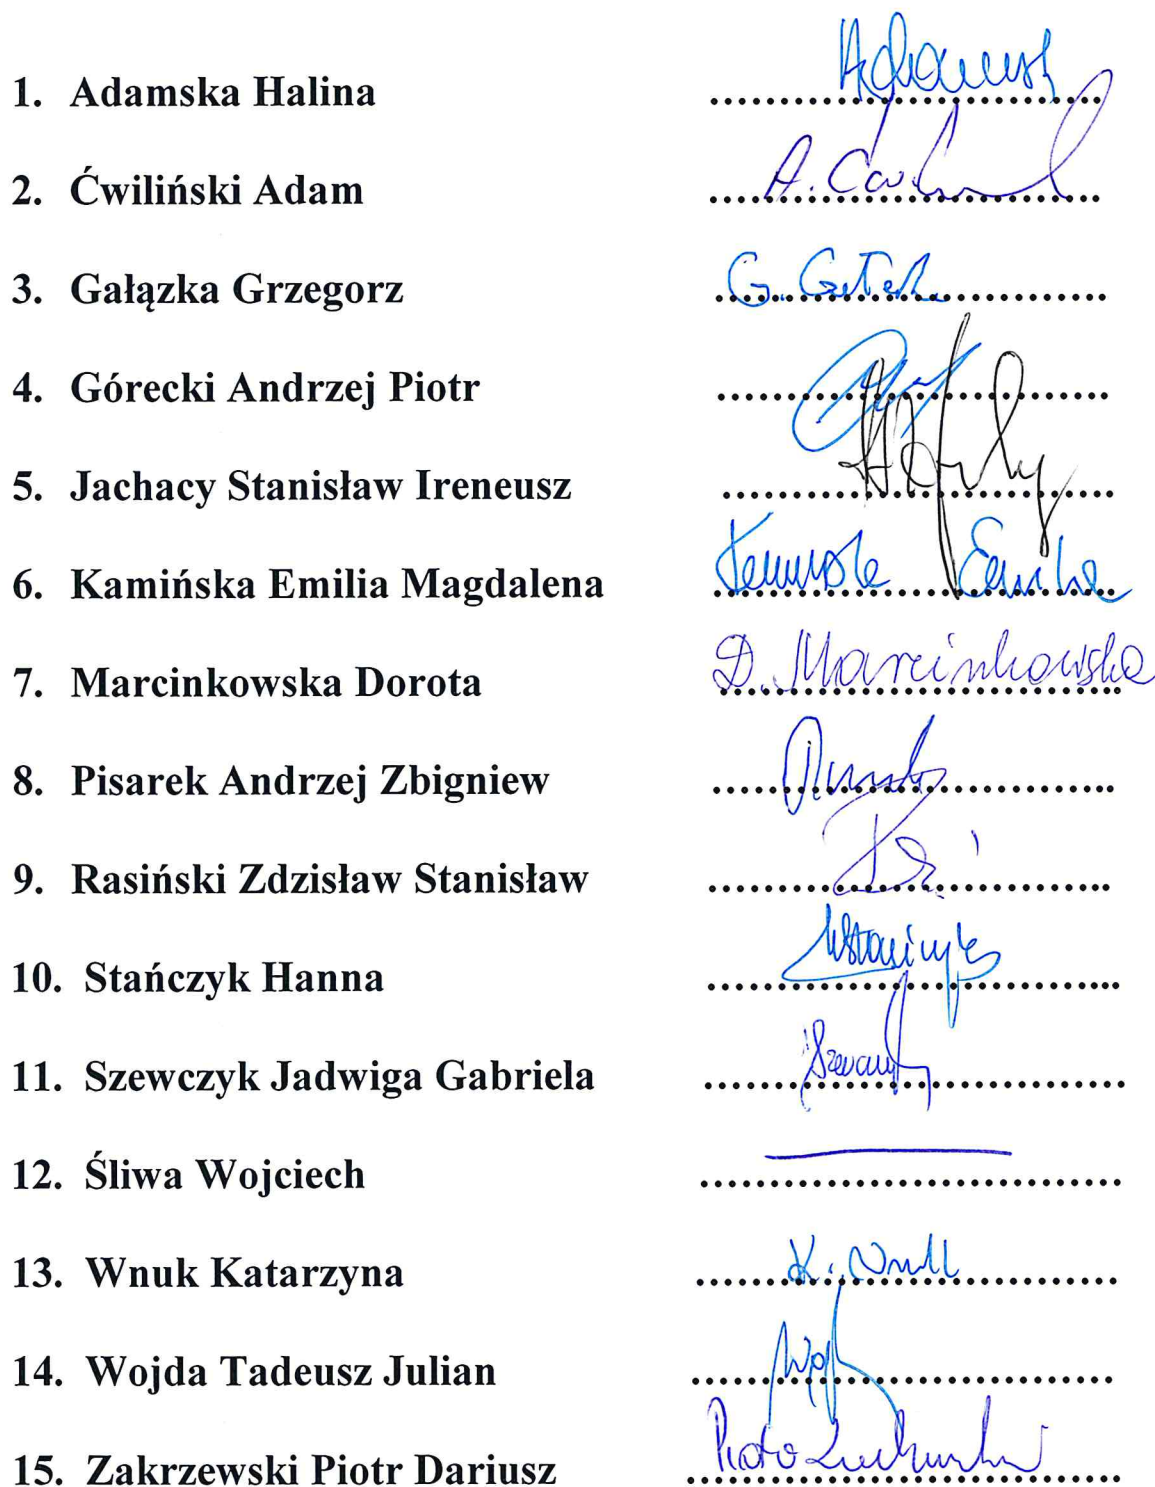 1. Adamska Halina ........................
2. Ćwiliński Adam ........................
3. Gałązka Grzegorz ........................
4. Górecki Andrzej Piotr ........................
5. Jachacy Stanisław Ireneusz ........................
6. Kamińska Emilia Magdalena ........................
7. Marcinkowska Dorota D. Marcinkowska
8. Pisarek Andrzej Zbigniew ........................
9. Rasiński Zdzisław Stanisław ........................
10. Stańczyk Hanna ........................
11. Szewczyk Jadwiga Gabriela ........................
12. Śliwa Wojciech ........................
13. Wnuk Katarzyna K. Wnuk
14. Wojda Tadeusz Julian ........................
15. Zakrzewski Piotr Dariusz ........................